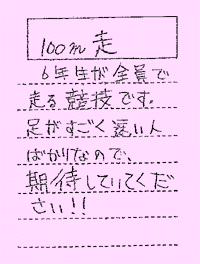 100m 走
6年生が全員で
走る競技です。
足がすごく速い人
ばかりなので、
期待していてくだ
さい!!